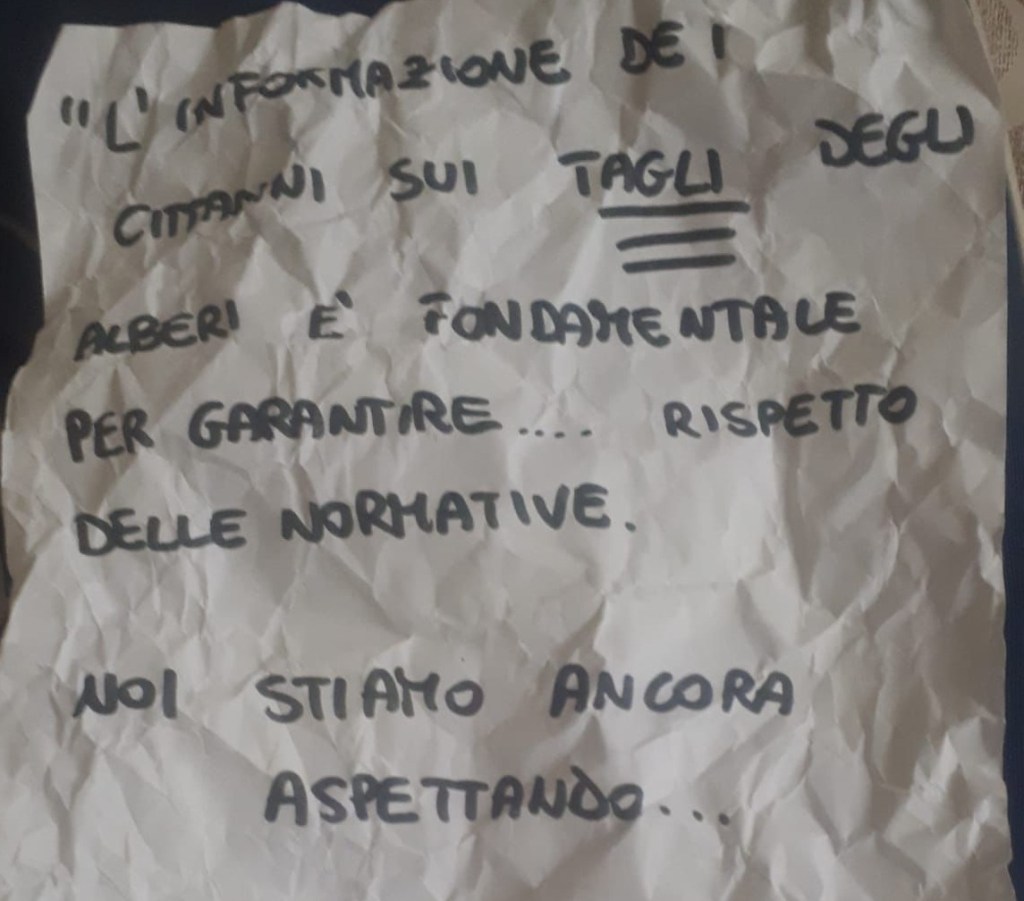 "L'INFORMAZIONE DEI
CITTANNI SUI TAGLI DEGLI
ALBERI E' FONDAMENTALE
PER GARANTIRE.... RISPETTO
DELLE NORMATIVE.
NOI STIAMO ANCORA
ASPETTANDO...